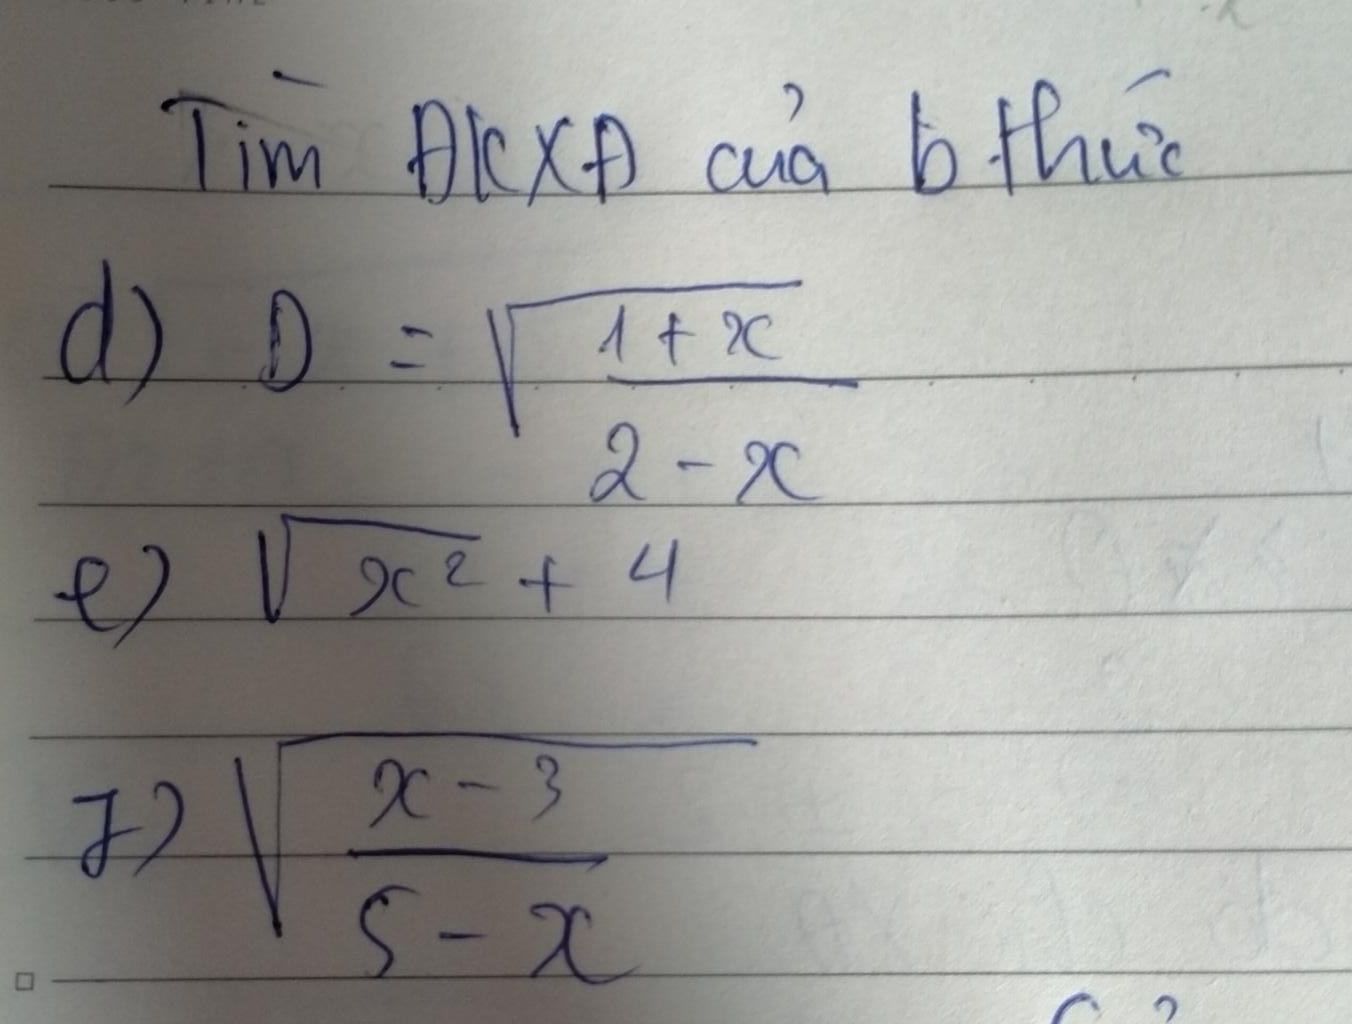 Tìm ĐKXĐ của b thức
d) D = √(1 + x)/(2 - x)
e) √x² + 4
7) √(x - 3)/(5 - x)